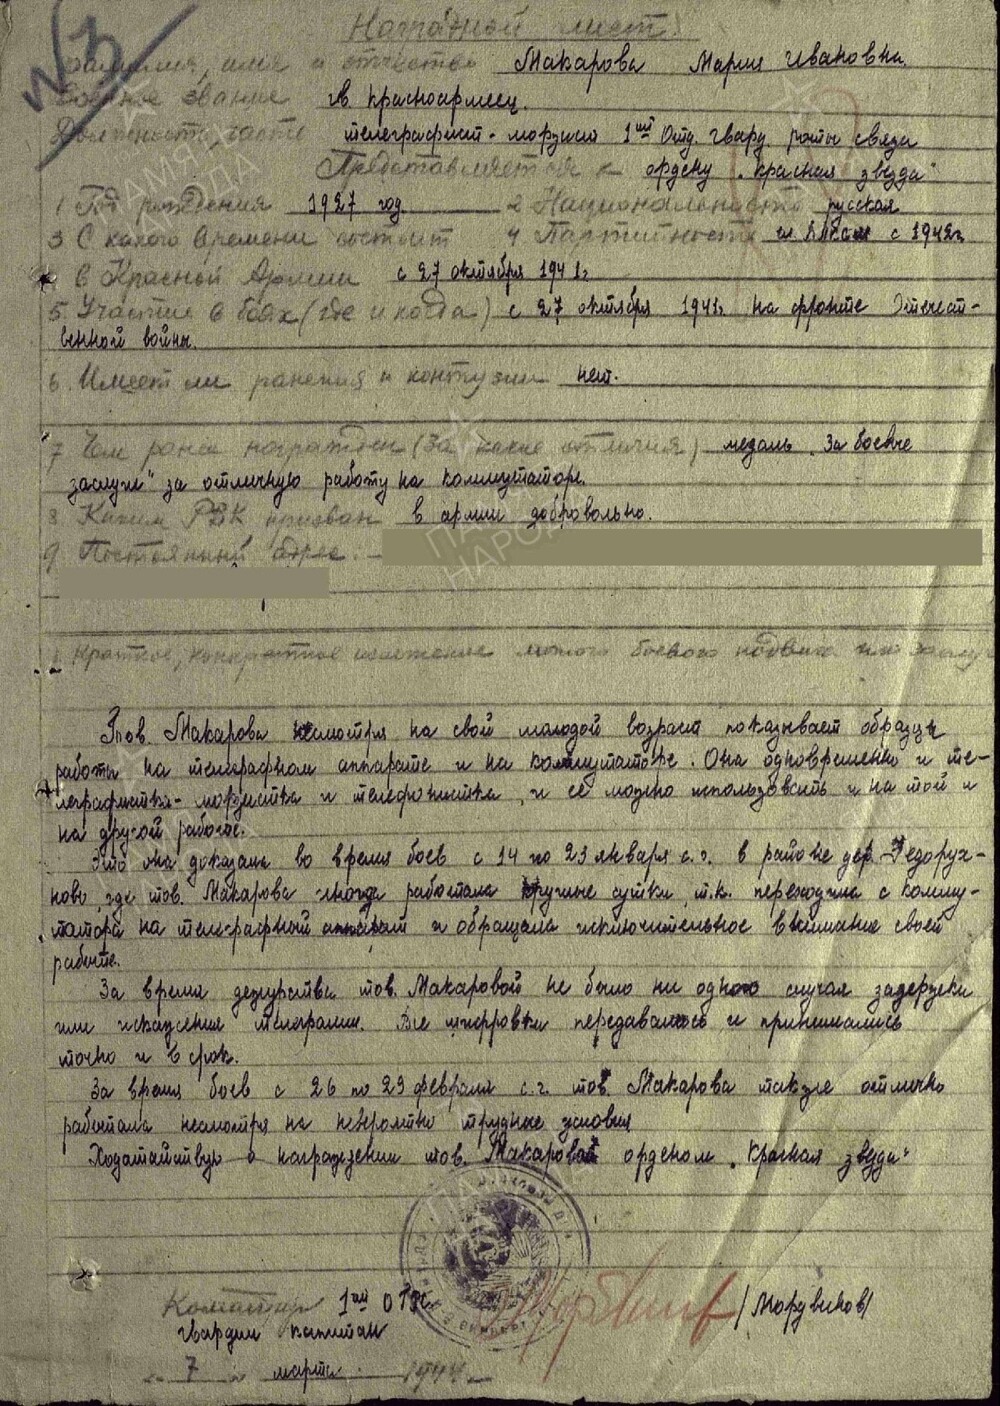 Наградной лист
Фамилия, имя и отчество Макарова Мария Ивановна.
Военное звание гв. Красноармеец.
Должность, часть телеграфист-морзист 1ой Отд. Гвард. роты связи
Представляется к ордену „Красная звезда"
1 Год рождения 1927 год 2 Национальность русская
3 С какого времени состоит 4 Партийность чл. ВЛКСМ с 1942г.
в Красной Армии с 27 октября 1941г
5. Участие в боях (где и когда) с 27 октября 1941г. на фронте Отечест-
венной войны.
6. Имеет ли ранения и контузии нет.
7 Чем ранее награжден (за какие отличия) медаль „За боевые
заслуги" за отличную работу на коммутаторе.
8 Каким РВК призван в армии добровольно.
9 Постоянный адрес. -
1 Краткое, конкретное изложение личного боевого подвига или заслуг
Тов. Макарова несмотря на свой молодой возраст показывает образцы
работы на телеграфном аппарате и на коммутаторе. Она одновременно и те-
леграфистка-морзистка и телефонистка, и её можно использовать и на той и
на другой работе.
Это она доказала во время боев с 14 по 23 января с.г. в районе дер. Федорух-
ново, где тов. Макарова иногда работала круглые сутки, т.к. переходила с комму-
татора на телеграфный аппарат и обращала исключительное внимание своей
работе.
За время дежурства тов. Макаровой не было ни одного случая задержки
или искажения телеграмм. Все шифровки передавались и принимались
точно и в срок.
За время боев с 26 по 29 февраля с.г. тов. Макарова также отлично
работала несмотря на невероятно трудные условия
Ходатайствую о награждении тов. Макаровой орденом „Красная звезда"
Командир 1ой ОГРС /Мордвинов/
гвардии капитан
„ 7 " марта 1944г.